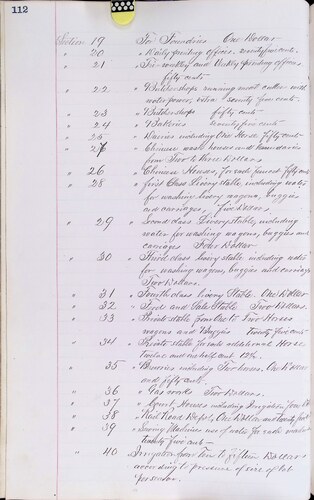 112
Section 19 For Foundries One Dollar
" 20 " Daily printing offices, seventy five cents.
" 21 " Tri-weekly and Weekly printing offices,
fifty cents
" 22 " Butchershops running meat cutter with
water power, extra seventy five cents.
" 23 " Butchershops fifty cents
" 24 " Bakeries seventy five cents
" 25 " Dairies including One Horse, Fifty cents
" 27 " Chinese wash houses and laundries
from Two to three Dollars.
" 26 " Chinese Houses, for each
" 28 " First Class Livery stable, including water
for washing livery wagons, buggies
and carriages, Five Dollars.
" 29 " Second class Livery stable, including
water for washing wagons, buggies and
carriages Four Dollars
" 30 " Third class livery stable including water
for washing wagons, buggies and carriages
Two Dollars.
" 31 " Fourth class livery Stable, One Dollar
" 32 " Feed and Sale Stable Two Dollars.
" 33 " Private stable from One to Four Horses
wagons and Buggies Twenty five cents
" 34 " Private stable for each additional Horse
twelve and one half cents 12½.
" 35 " Breweries including Two horses, One Dollar
and fifty cents.
" 36 " Gas works Two Dollars.
" 37 " Houses including Irrigation from
" 38 " Rail Road Depot, One Dollar and twenty five
" 39 " Sewing Machines use of water for each machine
twenty five cents
" 40 Irrigation from Two to fifteen Dollars
according to pressure of size of lot